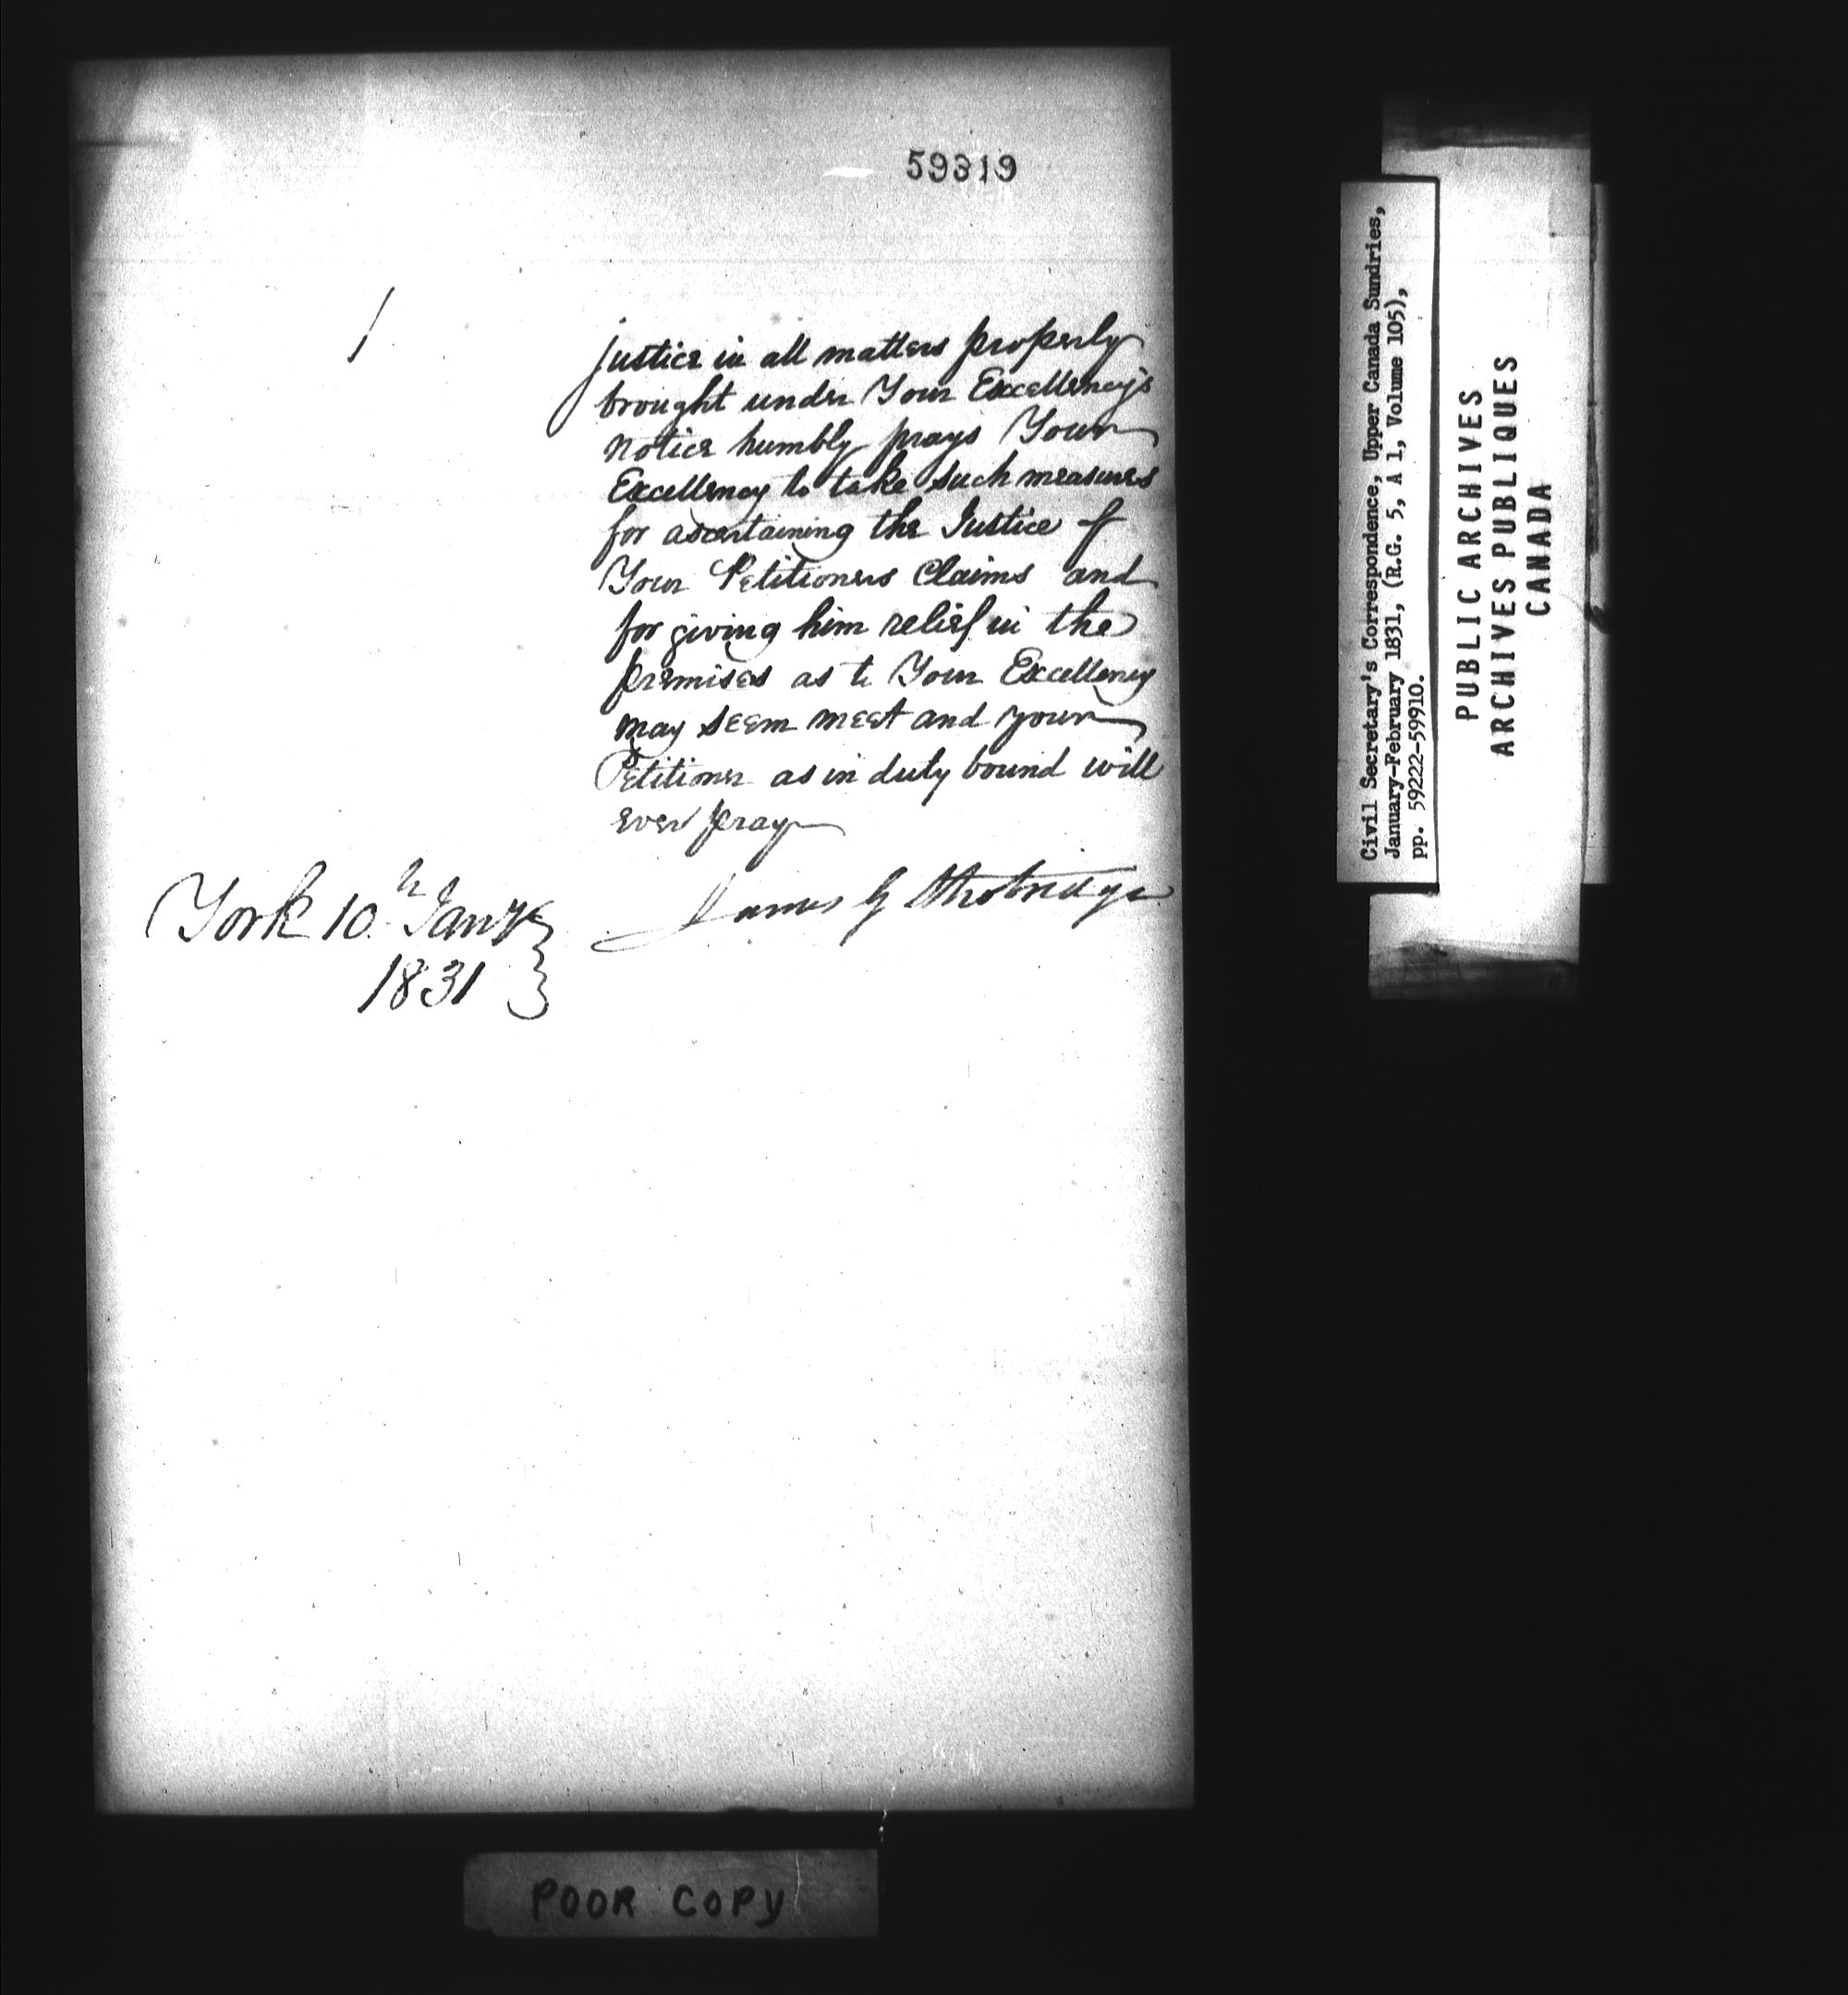 59319
justice in all matters properly
brought under Your Excellency's
notice humbly prays Your
Excellency to take such measures
for ascertaining the Justice of
Your Petitioners Claims and
for giving him relief in the
premises as to Your Excellency
may seem meet and your
Petitioner as in duty bound will
ever pray
James G
York 10th Jany
1831
POOR COPY
Civil Secretary's Correspondence, Upper Canada Sundries,
January-February 1831, (R.G. 5, A 1, Volume 105),
pp. 59222-59910.
PUBLIC ARCHIVES
ARCHIVES PUBLIQUES
CANADA